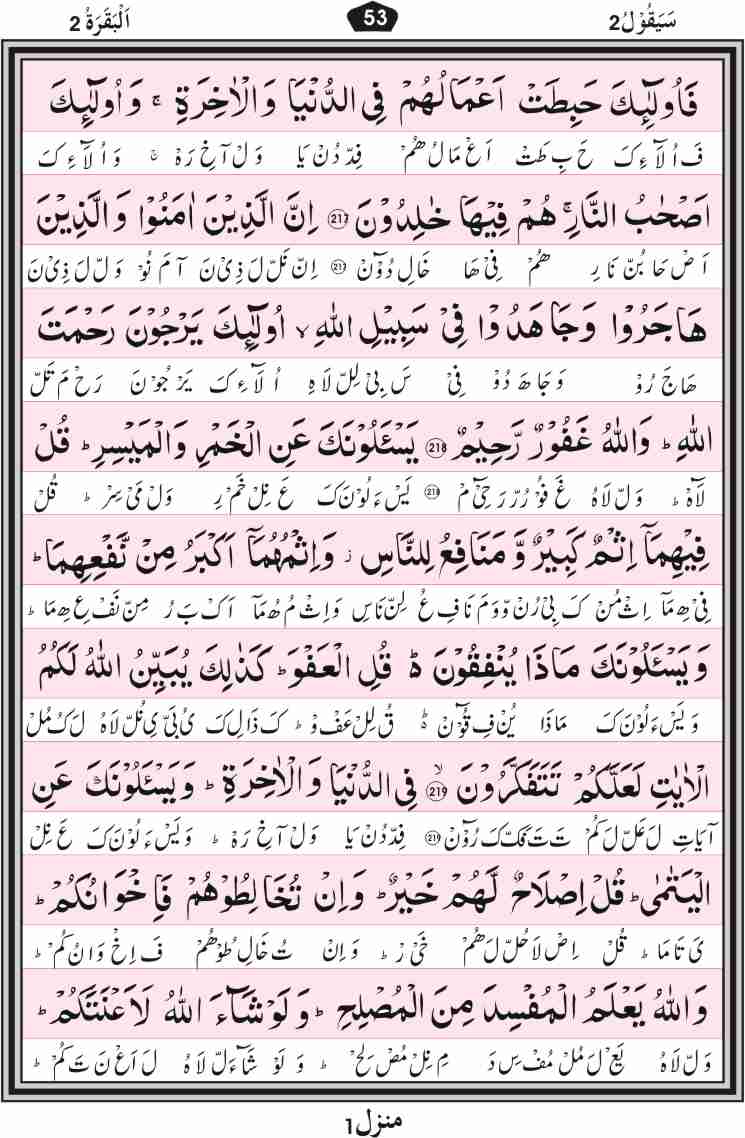 سَيَقُوْلُ2 53 اَلْبَقَرَةُ 2
فَاُولٰٓئِكَ حَبِطَتْ اَعْمَالُهُمْ فِى الدُّنْيَا وَالْاٰخِرَةِ ۚ وَاُولٰٓئِكَ
فَ اُ لَآ ءِ كَ حَ بِ طَتْ اَعْ مَالُ هُمْ فِدْ دُنْ يَا وَلْ آخِ رَهْ ۚ وَ اُ لَآ ءِ كَ
اَصْحٰبُ النَّارِ ۚ هُمْ فِيْهَا خٰلِدُوْنَ 217 اِنَّ الَّذِيْنَ اٰمَنُوْا وَالَّذِيْنَ
اَصْ حَا بُنْ نَارِ هُمْ فِىْ هَا خَالِ دُوْنْ 217 اِنْ نَلْ لَ ذِىْ نَ آ مَ نُوْ وَلْ لَ ذِىْ نَ
هَاجَرُوْا وَجَاهَدُوْا فِىْ سَبِيْلِ اللّٰهِ ۙ اُولٰٓئِكَ يَرْجُوْنَ رَحْمَتَ
هَاجَ رُوْ وَ جَاهَ دُوْ فِىْ سَ بِىْ لِلْ لَاهِ اُ لَآ ءِ كَ يَرْ جُوْنَ رَحْ مَ تَلْ
اللّٰهِ ؕ وَاللّٰهُ غَفُوْرٌ رَّحِيْمٌ 218 يَسْـَٔلُوْنَكَ عَنِ الْخَمْرِ وَالْمَيْسِرِ ؕ قُلْ
لَاهْ ؕ وَلْ لَاهُ غَ فُوْ رُرْ رَ حِىْ مْ 218 يَسْ ءَ لُوْنَ كَ عَ نِلْ خَمْ رِ وَلْ مَىْ سِرْ ؕ قُلْ
فِيْهِمَآ اِثْمٌ كَبِيْرٌ وَّ مَنَافِعُ لِلنَّاسِ ز وَاِثْمُهُمَآ اَكْبَرُ مِنْ نَّفْعِهِمَا ؕ
فِىْ هِ مَآ اِثْ مُنْ كَ بِىْ رُنْ وْ وَ مَ نَافِ عُ لِنْ نَاسِ وَ اِثْ مُ هُ مَآ اَكْ بَ رُ مِنْ نَفْ عِ هِ مَا ؕ
وَيَسْـَٔلُوْنَكَ مَاذَا يُنْفِقُوْنَ ؕ قُلِ الْعَفْوَ ؕ كَذٰلِكَ يُبَيِّنُ اللّٰهُ لَكُمُ
وَ يَسْ ءَ لُوْنَ كَ مَاذَا يُنْ فِ قُوْنْ ؕ قُ لِلْ عَفْ وْ ؕ كَ ذَالِ كَ يُ بَىْ يِ نُلْ لَاهُ لَ كُ مُلْ
الْاٰيٰتِ لَعَلَّكُمْ تَتَفَكَّرُوْنَ ۙ 219 فِى الدُّنْيَا وَالْاٰخِرَةِ ؕ وَيَسْـَٔلُوْنَكَ عَنِ
آ يَاتِ لَ عَلْ لَ كُمْ تَ تَ فَكْ كَ رُوْنْ 219 فِدْ دُنْ يَا وَلْ آخِ رَهْ ؕ وَ يَسْ ءَ لُوْنَ كَ عَ نِلْ
الْيَتٰمٰى ؕ قُلْ اِصْلَاحٌ لَّهُمْ خَيْرٌ ؕ وَاِنْ تُخَالِطُوْهُمْ فَاِخْوَانُكُمْ ؕ
يَ تَا مَا ؕ قُلْ اِصْ لَاحُلْ لَ هُمْ خَىْ رْ ؕ وَ اِنْ تُ خَالِ طُوْهُمْ فَ اِخْ وَ انُ كُمْ ؕ
وَاللّٰهُ يَعْلَمُ الْمُفْسِدَ مِنَ الْمُصْلِحِ ؕ وَلَوْ شَآءَ اللّٰهُ لَاَعْنَتَكُمْ ؕ
وَلْ لَاهُ يَعْ لَ مُلْ مُفْ سِ دَ مِ نَلْ مُصْ لِحْ ؕ وَ لَوْ شَآءَ لْ لَاهُ لَ اَعْ نَ تَ كُمْ ؕ
منزل 1